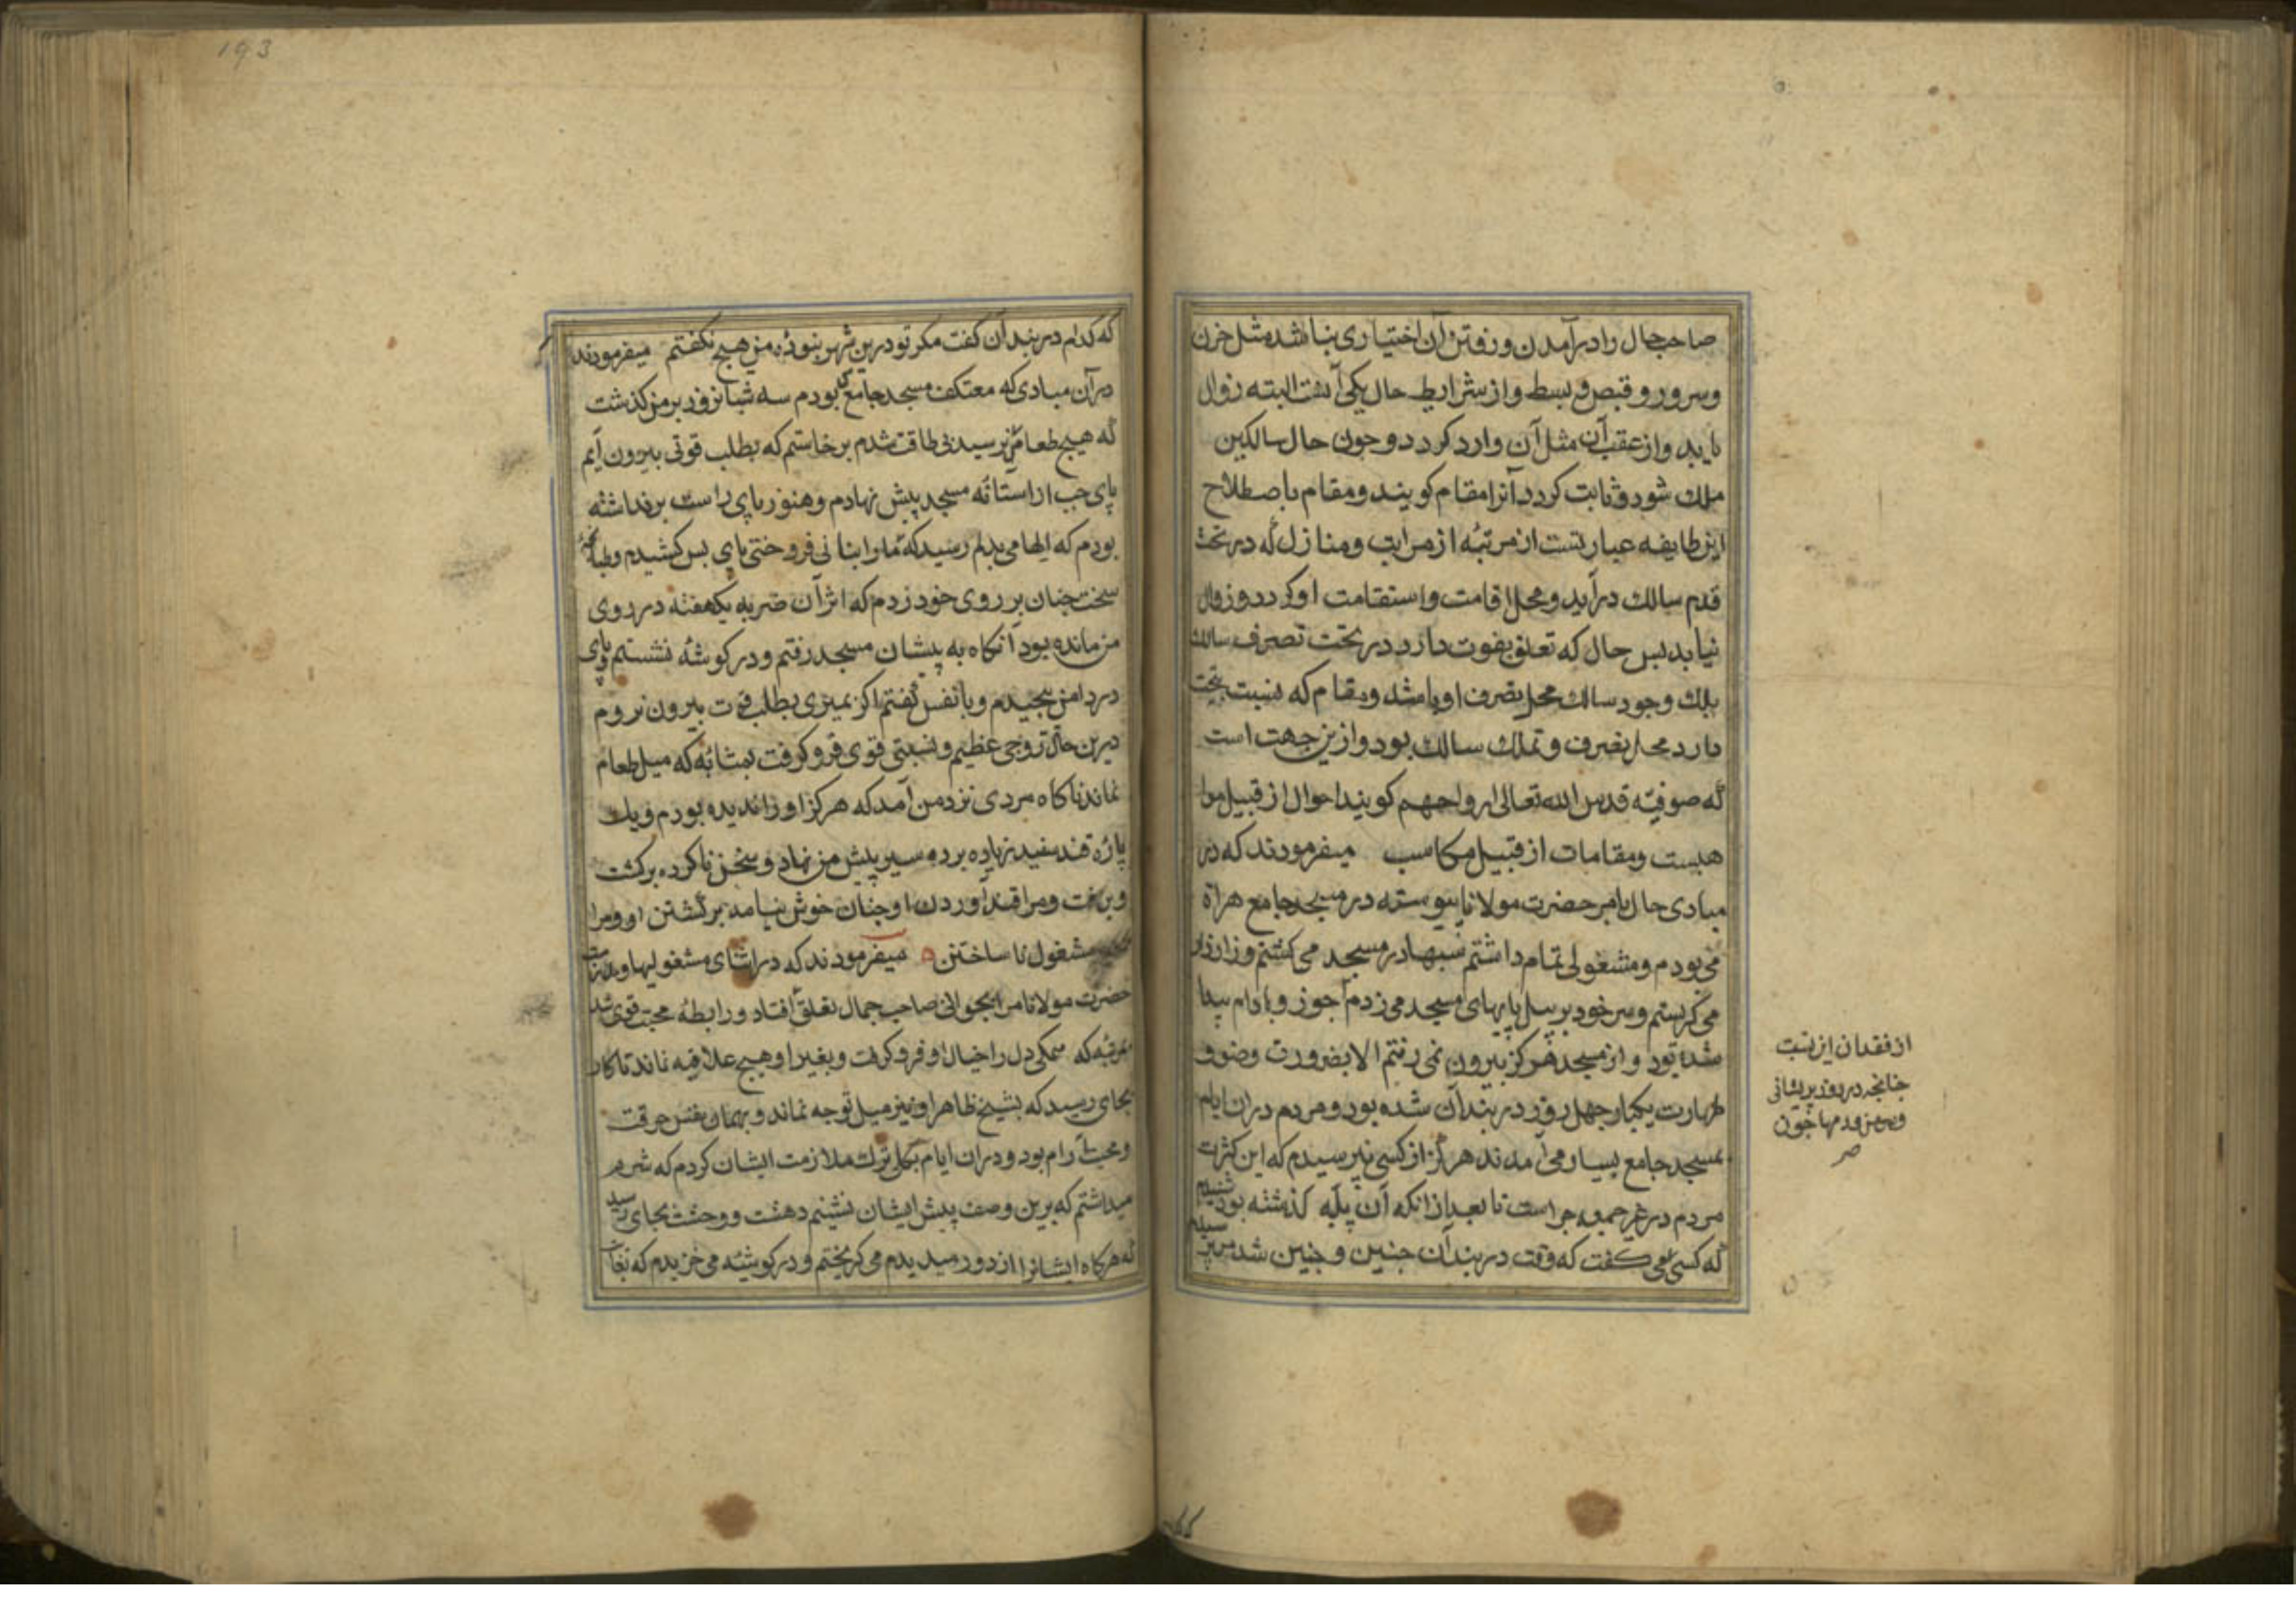 صاحب حال را در آمدن و رفتن آن اختیاری نباشد مثل حزن
و سرور و قبض و بسط و از شرایط حال یکی آنست البته زوال
یابد و از عقب آن مثل آن وارد کردد و چون حال سالکین
ملك شود و ثابت کردد آنرا مقام کویند و مقام باصطلاح
این طایفه عبارتست از مرتبهٔ از مراتب و منازل که در تحت
قدم سالك درآید و محل اقامت و استقامت او کردد و زوال
نیابد پس حال که تعلق بفوق دارد در تحت تصرف سالك
بلك وجود سالك محل تصرف او باشد و مقام که نسبت بتحت
دارد محل تصرف و تملك سالك بود و ازین جهت است
که صوفیه قدس الله تعالی ارواحهم کویند احوال از قبیل موا
هبست و مقامات از قبیل مکاسب میفرمودند که در
مبادی حال بامر حضرت مولانا پیوسته در مسجد جامع هراة
می بودم و مشغولی تمام داشتم شبها در مسجد می کشتم و زار زار
می کریستم و سر خود بر سل پایهای مسجد می زدم جوز و بادام پیدا
شده بود و از مسجد هرکز بیرون نمی رفتم الا بضرورت وضو و
طهارت یکبار چهل روز در بندآن شده بود و مردم در ان ایام
بمسجد جامع بسیار می آمدند هرکز از کسی نپرسیدم که این کثرت
مردم در غیر جمعه چراست تا بعد از انکه آن پله کذشته بود شنیدم
که کسی می کفت که وقت در بندآن چنین و چنین شد من پرسیدم
از فقدان این نسبت
چنانچه در روز پریشانی
چون
صح
193
که کدام در بندآن کفت مکر تو درین شهر نبودهٔ من هیچ نکفتم میفرمودند
در آن مبادی که معتکف مسجد جامع بودم سه شبانروز بر من کذشت
که هیچ طعامی نرسید بی طاقت شدم برخاستم که بطلب قوتی بیرون آیم
پای چپ از استانه مسجد پیش نهادم و هنوز پای راست برنداشته
بودم که الهامی بدلم رسید که ما را بنانی فروختی پای پس کشیدم و طپانچهٔ
سخت چنان بر روی خود زدم که اثر آن ضربه یکهفته در روی
من مانده بود آنکاه به پیشان مسجد رفتم و در کوشهٔ نشستم و پای
در دامن پیچیدم و با نفس کفتم اکر بمیری بطلب قوت بیرون نروم
درین حال روحی عظیم و نسبتی قوی فرو کرفت بمثابهٔ که میل طعام
نماند ناکاه مردی نزد من آمد که هرکز او را ندیده بودم و یك
پارهٔ قند سفید زیاده بر ده سیر پیش من نهاد و سخن ناکرده برکشت
و برفت و مرا قند آوردن او چنان خوش نیامد برکشتن او و مرا
مشغول نا ساختن میفرمودند که در اثنای مشغولیها و ملازمت
حضرت مولانا مرا بجوانی صاحب جمال تعلق افتاد و رابطهٔ محبت قوی شد
بمرتبهٔ که همکی دل را خیال او فرو کرفت و بغیر او هیچ علاقه نماند تا کار
بجای رسید که بشیخ ظاهر او نیز میل توجه نماند و بهمان نفس حرقت
و محبت آرام بود و در ان ایام بکلی ترك ملازمت ایشان کردم که شرم
میداشتم که برین وصف پیش ایشان نشینم دهشت و وحشت بجای رسید
که هرکاه ایشانرا از دور میدیدم می کریختم و در کوشهٔ می خزیدم که بغایت